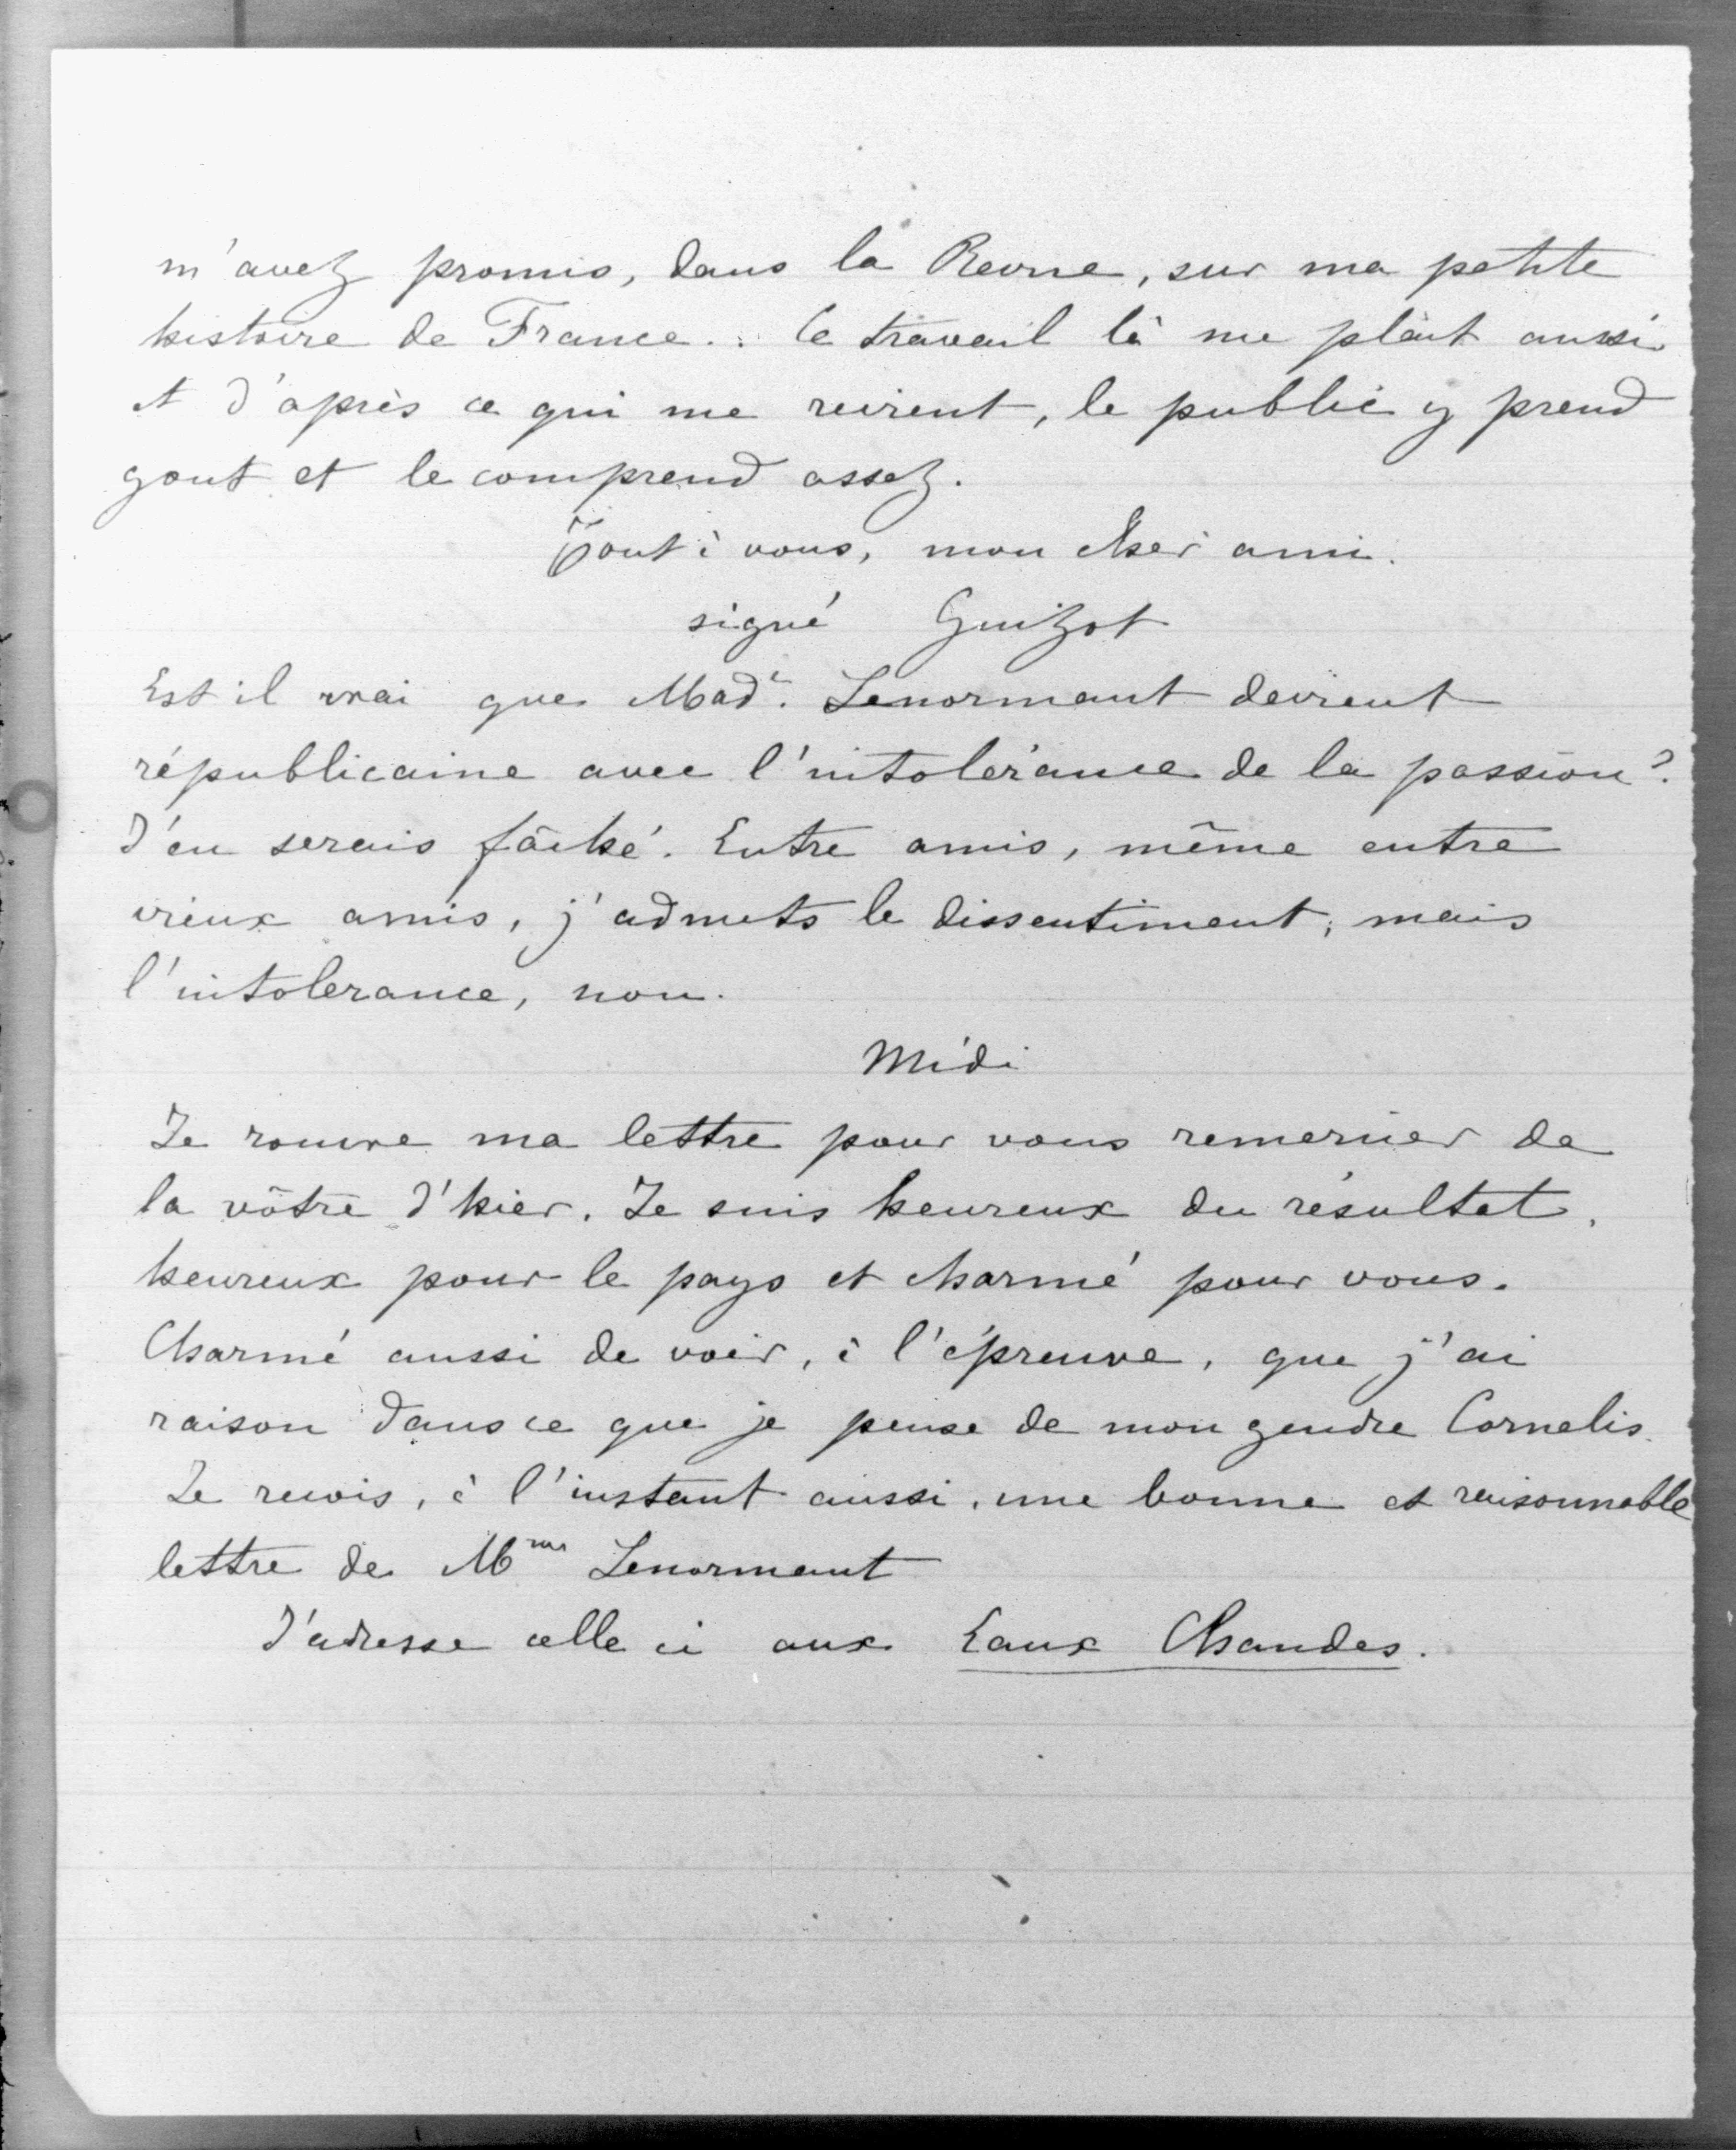 m'avez promis, dans la Revue, sur ma petite
histoire de France.. Ce travail là me plait aussi
et d'après ce qui me revient, le public y prend
gout et le comprend assez.
Tout à vous, mon cher ami.
signé Guizot
Est il vrai que Made. Lenormant devient
républicaine avec l'intolérance de la passion?
J'en serais fâché. Entre amis, même entre
vieux amis, j'admets le dissentiment, mais
l'intolerance, non.
Midi
Je rouvre ma lettre pour vous remercier de
la vôtre d'hier. Je suis heureux du résultat,
heureux pour le pays et charmé pour vous.
Charmé aussi de voir, à l'épreuve, que j'ai
raison dans ce que je pense de mon gendre Cornelis.
Je reçois, à l'instant aussi, une bonne et raisonnable
lettre de Mme Lenormant
J'adresse celle ci aux Eaux Chaudes.